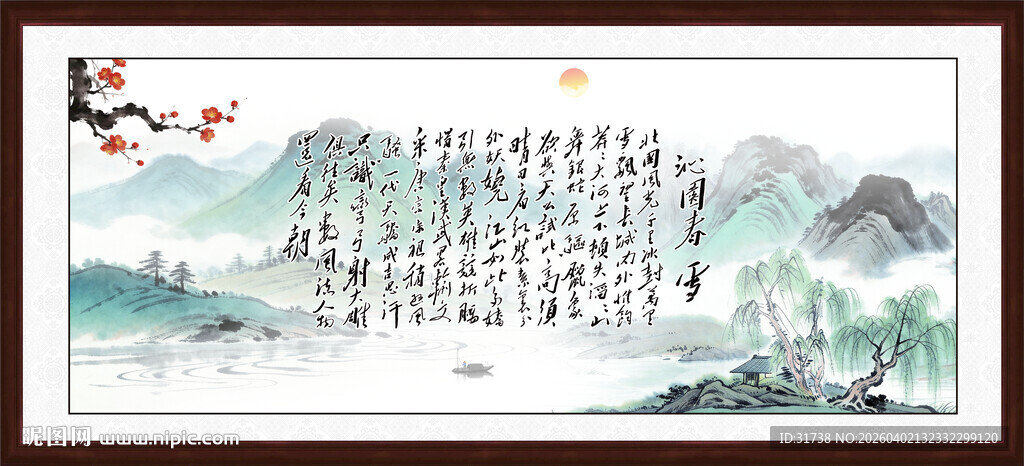 沁園春 雪
北國風光千里冰封萬里
雪飄望長城內外惟餘
莽々大河上下頓失滔々山
舞銀蛇原驅臘象
欲與天公試比高須
晴日看紅裝素裹分
外妖嬈 江山如此多嬌
引無數英雄競折腰
惜秦皇漢武略輸文
采唐宗宋祖稍遜風
騷一代天驕成吉思汗
只識彎弓射大雕
俱往矣數風流人物
還看今朝
昵图网 www.nipic.com
ID:31738 NO:20260402132332299120